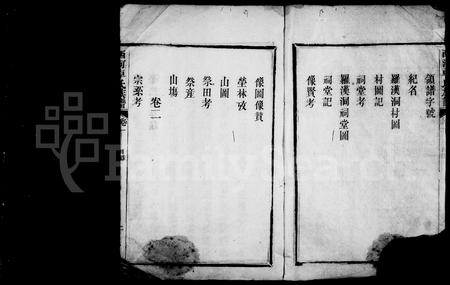 領譜字號
紀名
羅漢洞村圖
村圖記
祠堂考
羅漢洞祠堂圖
祠堂記
像賢考
像圖像賛
塋林攷
山圖
祭田考
祭產
山塲
卷二
宗系考
FamilySearch